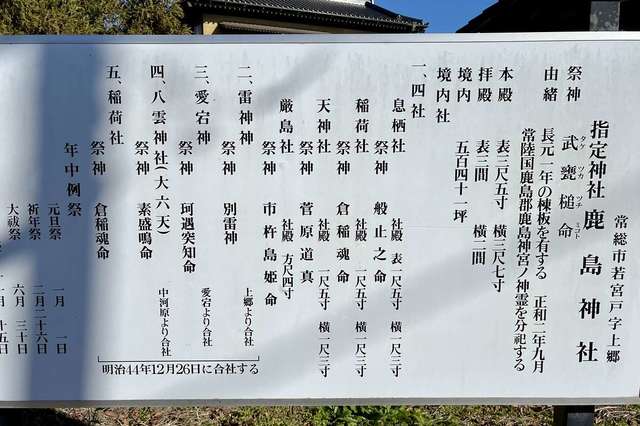 常総市若宮戸字上郷
指定神社 鹿島神社
祭神 武甕槌命
タケ ツカ ツチ ミコト
由緒 長元一年の棟板を有する 正和二年九月
常陸国鹿島郡鹿島神宮ノ神霊を分祀する
本殿 表三尺五寸 横三尺七寸
拝殿 表三間 横二間
境内 五百四十一坪
境内社
一、四社
息栖社 祭神 般止之命 社殿 表一尺五寸 横一尺三寸
稲荷社 祭神 倉稲魂命 社殿 一尺五寸 横一尺三寸
天神社 祭神 菅原道真 社殿 一尺五寸 横一尺三寸
厳島社 祭神 市杵島姫命 社殿 方尺四寸
二、雷神神 祭神 別雷神 上郷より合社
三、愛宕神 祭神 珂遇突知命 愛宕より合社
四、八雲神社(大六天) 祭神 素盛鳴命 中河原より合社
五、稲荷社 祭神 倉稲魂命
明治44年12月26日に合社する
年中例祭
元旦祭 一月 一日
祈年祭 二月二十六日
大祓祭 六月 三十日
十五日